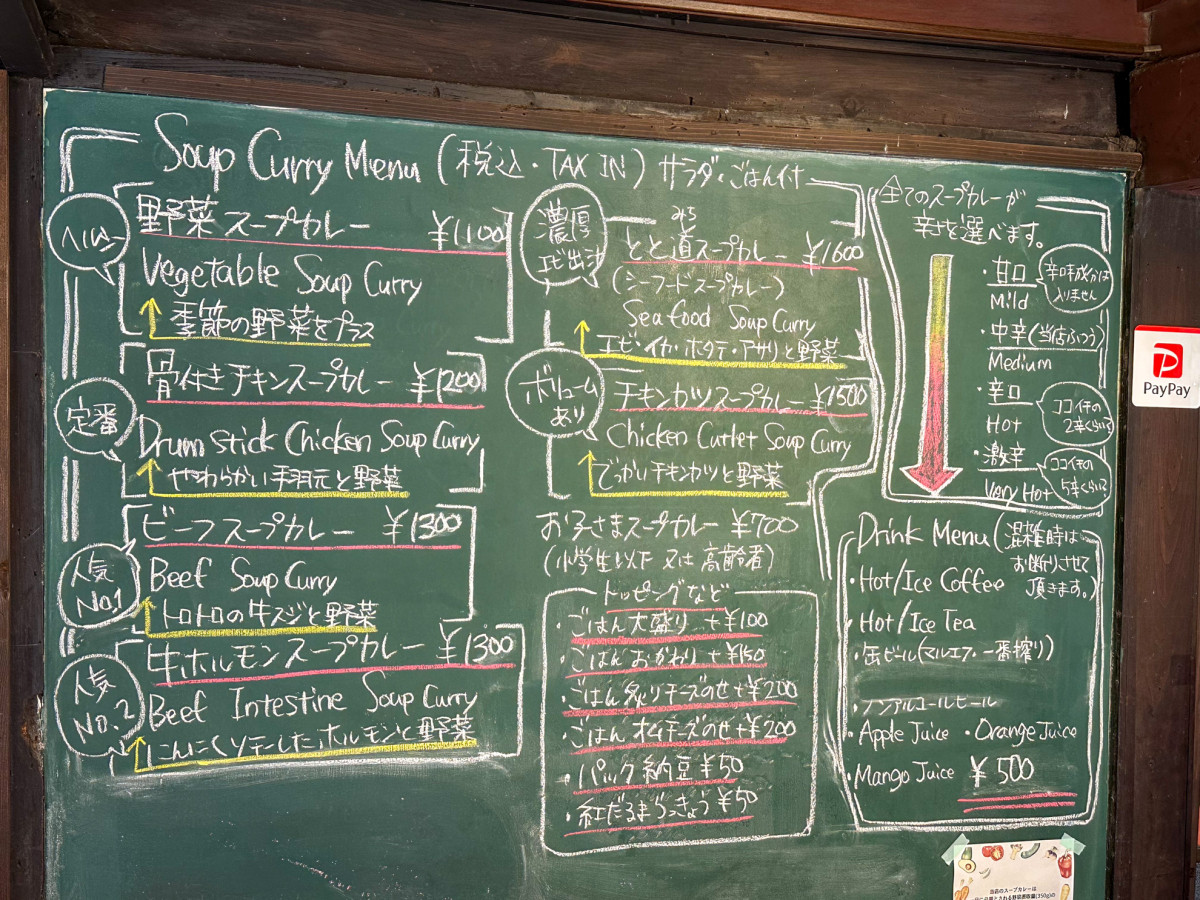 Soup Curry Menu (税込・TAX IN) サラダ・ごはん付
ヘルシー
野菜スープカレー ¥1100
Vegetable Soup Curry
季節の野菜をプラス
定番
骨付きチキンスープカレー ¥1200
Drum stick Chicken Soup Curry
やわらかい手羽元と野菜
人気 No.1
ビーフスープカレー ¥1300
Beef Soup Curry
トロトロの牛スジと野菜
人気 No.2
牛ホルモンスープカレー ¥1300
Beef Intestine Soup Curry
にんにくソテーしたホルモンと野菜
濃厚
エビ出汁
みち
とと道スープカレー ¥1600
(シーフードスープカレー)
Seafood Soup Curry
エビ・イカ・ホタテ・アサリと野菜
ボリューム
あり
チキンカツスープカレー ¥1500
Chicken Cutlet Soup Curry
でっかいチキンカツと野菜
お子さまスープカレー ¥700
(小学生以下 又は 高齢者)
トッピングなど
・ごはん大盛り +¥100
・ごはんおかわり +¥150
・ごはん炙りチーズのせ +¥200
・ごはんオムチーズのせ +¥200
・パック納豆 ¥50
・紅だるまらっきょう ¥50
全てのスープカレーが
辛さを選べます。
・甘口
Mild
辛口味成分は
入りません
・中辛(当店ふつう)
Medium
・辛口
Hot
ココイチの
2辛くらい?
・激辛
Very Hot
ココイチの
5辛くらい?
Drink Menu (混雑時は
お断りさせて
頂きます。)
・Hot/Ice Coffee
・Hot/Ice Tea
・缶ビール(マルエフ・一番搾り)
・ノンアルコールビール
・Apple Juice ・Orange Juice
・Mango Juice ¥500
PayPay
当店のスープカレーは